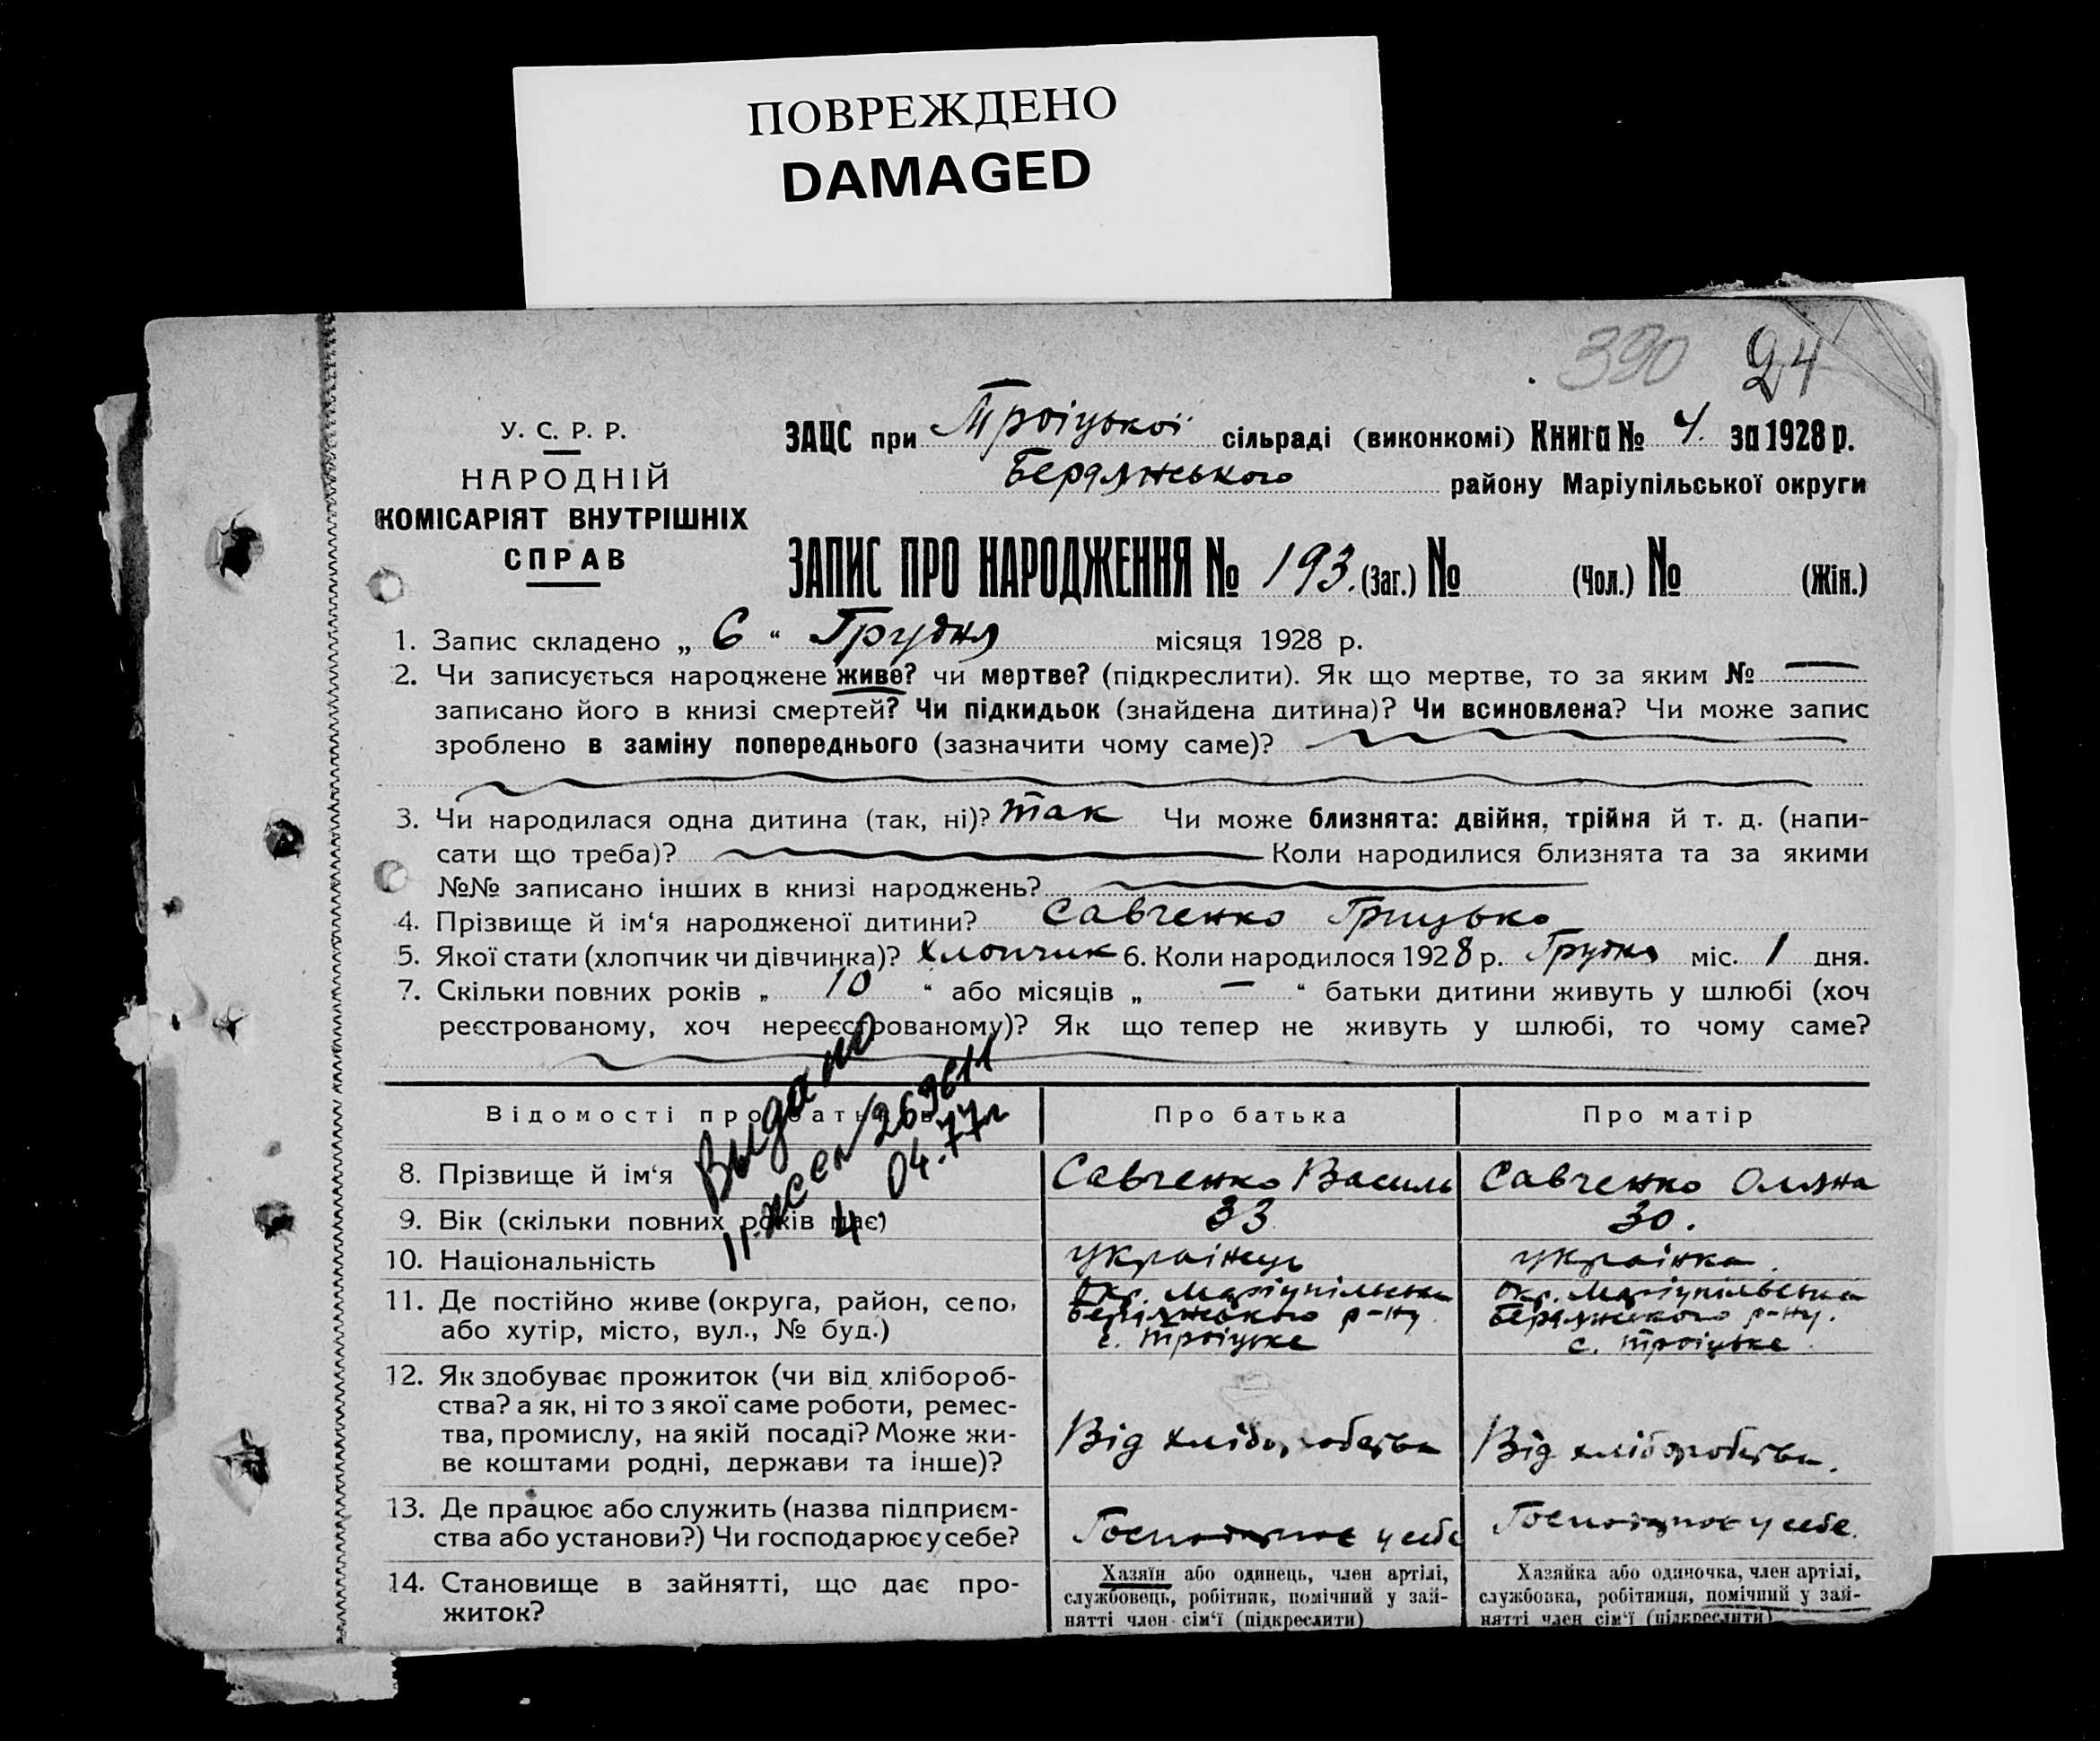 ПОВРЕЖДЕНО
DAMAGED
390 24
У. С. Р. Р.
НАРОДНІЙ
КОМІСАРІЯТ ВНУТРІШНІХ
СПРАВ
ЗАЦС при Троіцької сільраді (виконкомі) Книга № 4. за 1928 р.
Бердянського району Маріупільської округи
ЗАПИС ПРО НАРОДЖЕННЯ № 193. (Заг.) № (Чол.) № (Жін.)
1. Запис складено „ 6 “ Грудня місяця 1928 р.
2. Чи записується народжене живе? чи мертве? (підкреслити). Як що мертве, то за яким № —
записано його в книзі смертей? Чи підкидьок (знайдена дитина)? Чи всиновлена? Чи може запис
зроблено в заміну попереднього (зазначити чому саме)?
3. Чи народилася одна дитина (так, ні)? так Чи може близнята: двійня, трійня й т. д. (напи-
сати що треба)? Коли народилися близнята та за якими
№№ записано інших в книзі народжень?
4. Прізвище й ім‘я народженої дитини? Савченко Грицько
5. Якої стати (хлопчик чи дівчинка)? Хлопчик 6. Коли народилося 1928 р. Грудня міс. 1 дня.
7. Скільки повних років „ 10 “ або місяців „ — “ батьки дитини живуть у шлюбі (хоч
реєстрованому, хоч нереєстрованому)? Як що тепер не живуть у шлюбі, то чому саме?
Выдано
269611
4 04.77г
Відомості про батьків Про батька Про матір
8. Прізвище й ім‘я Савченко Василь Савченко Оляна
9. Вік (скільки повних років має) 33 30.
10. Національність українець українка.
11. Де постійно живе (округа, район, село, Окр. Маріупільська Окр. Маріупільська
або хутір, місто, вул., № буд.) Бердянського р-ну Бердянського р-ну.
с. Троіцьке с. Троіцьке
12. Як здобуває прожиток (чи від хлібороб-
ства? а як, ні то з якої саме роботи, ремес-
тва, промислу, на якій посаді? Може жи- Від хліборобства Від хліборобства.
ве коштами родні, держави та інше)?
13. Де працює або служить (назва підприєм-
ства або установи?) Чи господарює у себе? Господарює у себе Господарює у себе.
14. Становище в зайнятті, що дає про- Хазяїн або одинець, член артілі, Хазяйка або одиночка, член артілі,
житок? службовець, робітник, помічний у зай- службовка, робітниця, помічний у зай-
нятті член сім‘ї (підкреслити) нятті член сім‘ї (підкреслити)